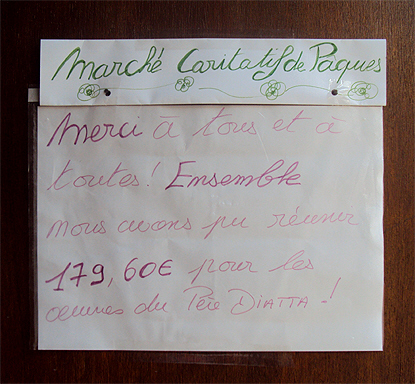 Marché Caritatif de Pâques
Merci à tous et à
toutes ! Ensemble
nous avons pu réunir
179,60€ pour les
œuvres du Père DIATTA - !